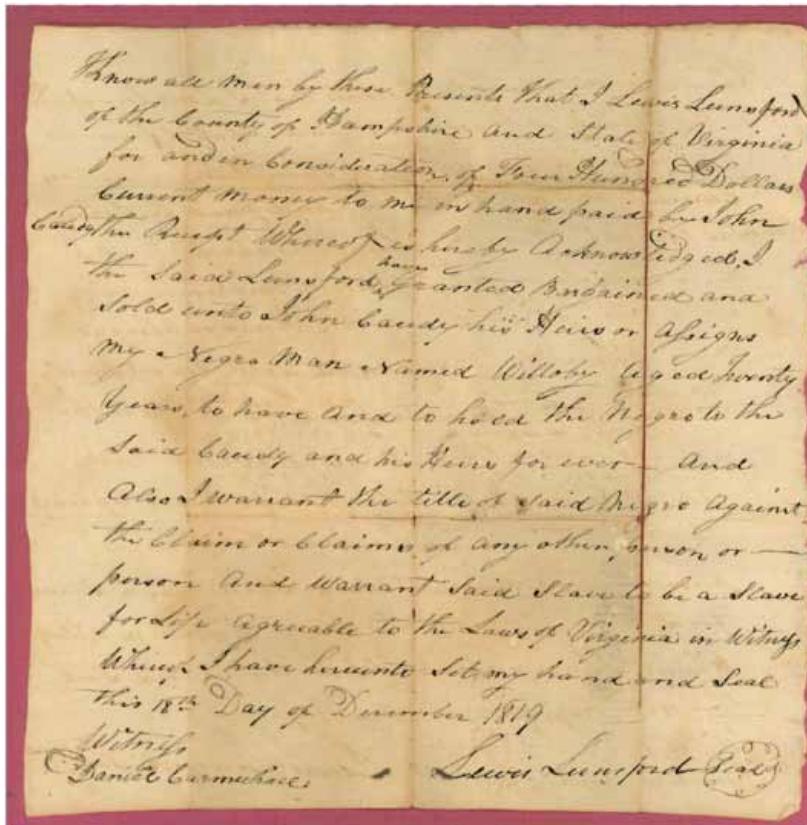 Know all men by these Presents That I Lewis Lunsford
of the County of Hampshire and State of Virginia
for and in Consideration of Four Hundred Dollars
Current money to me in hand paid by John
Caudy the Receipt Whereof is hereby Acknowledged, I
the Said Lunsford have granted Bardained and
Sold unto John Caudy his Heirs or Assigns
my Negro Man Named Willoby Aged Twenty
Years, to have And to hold the Negro to the
Said Caudy and his Heirs for ever — And
Also I warrant the title of said Negro Against
the Claim or Claims of any other person or —
person And Warrant Said Slave to be a Slave
for Life agreeable to the Laws of Virginia in Witness
Whereof I have hereunto Set my hand and Seal
this 18th Day of December 1819
Witness
Daniel Carmichael Lewis Lunsford Seal